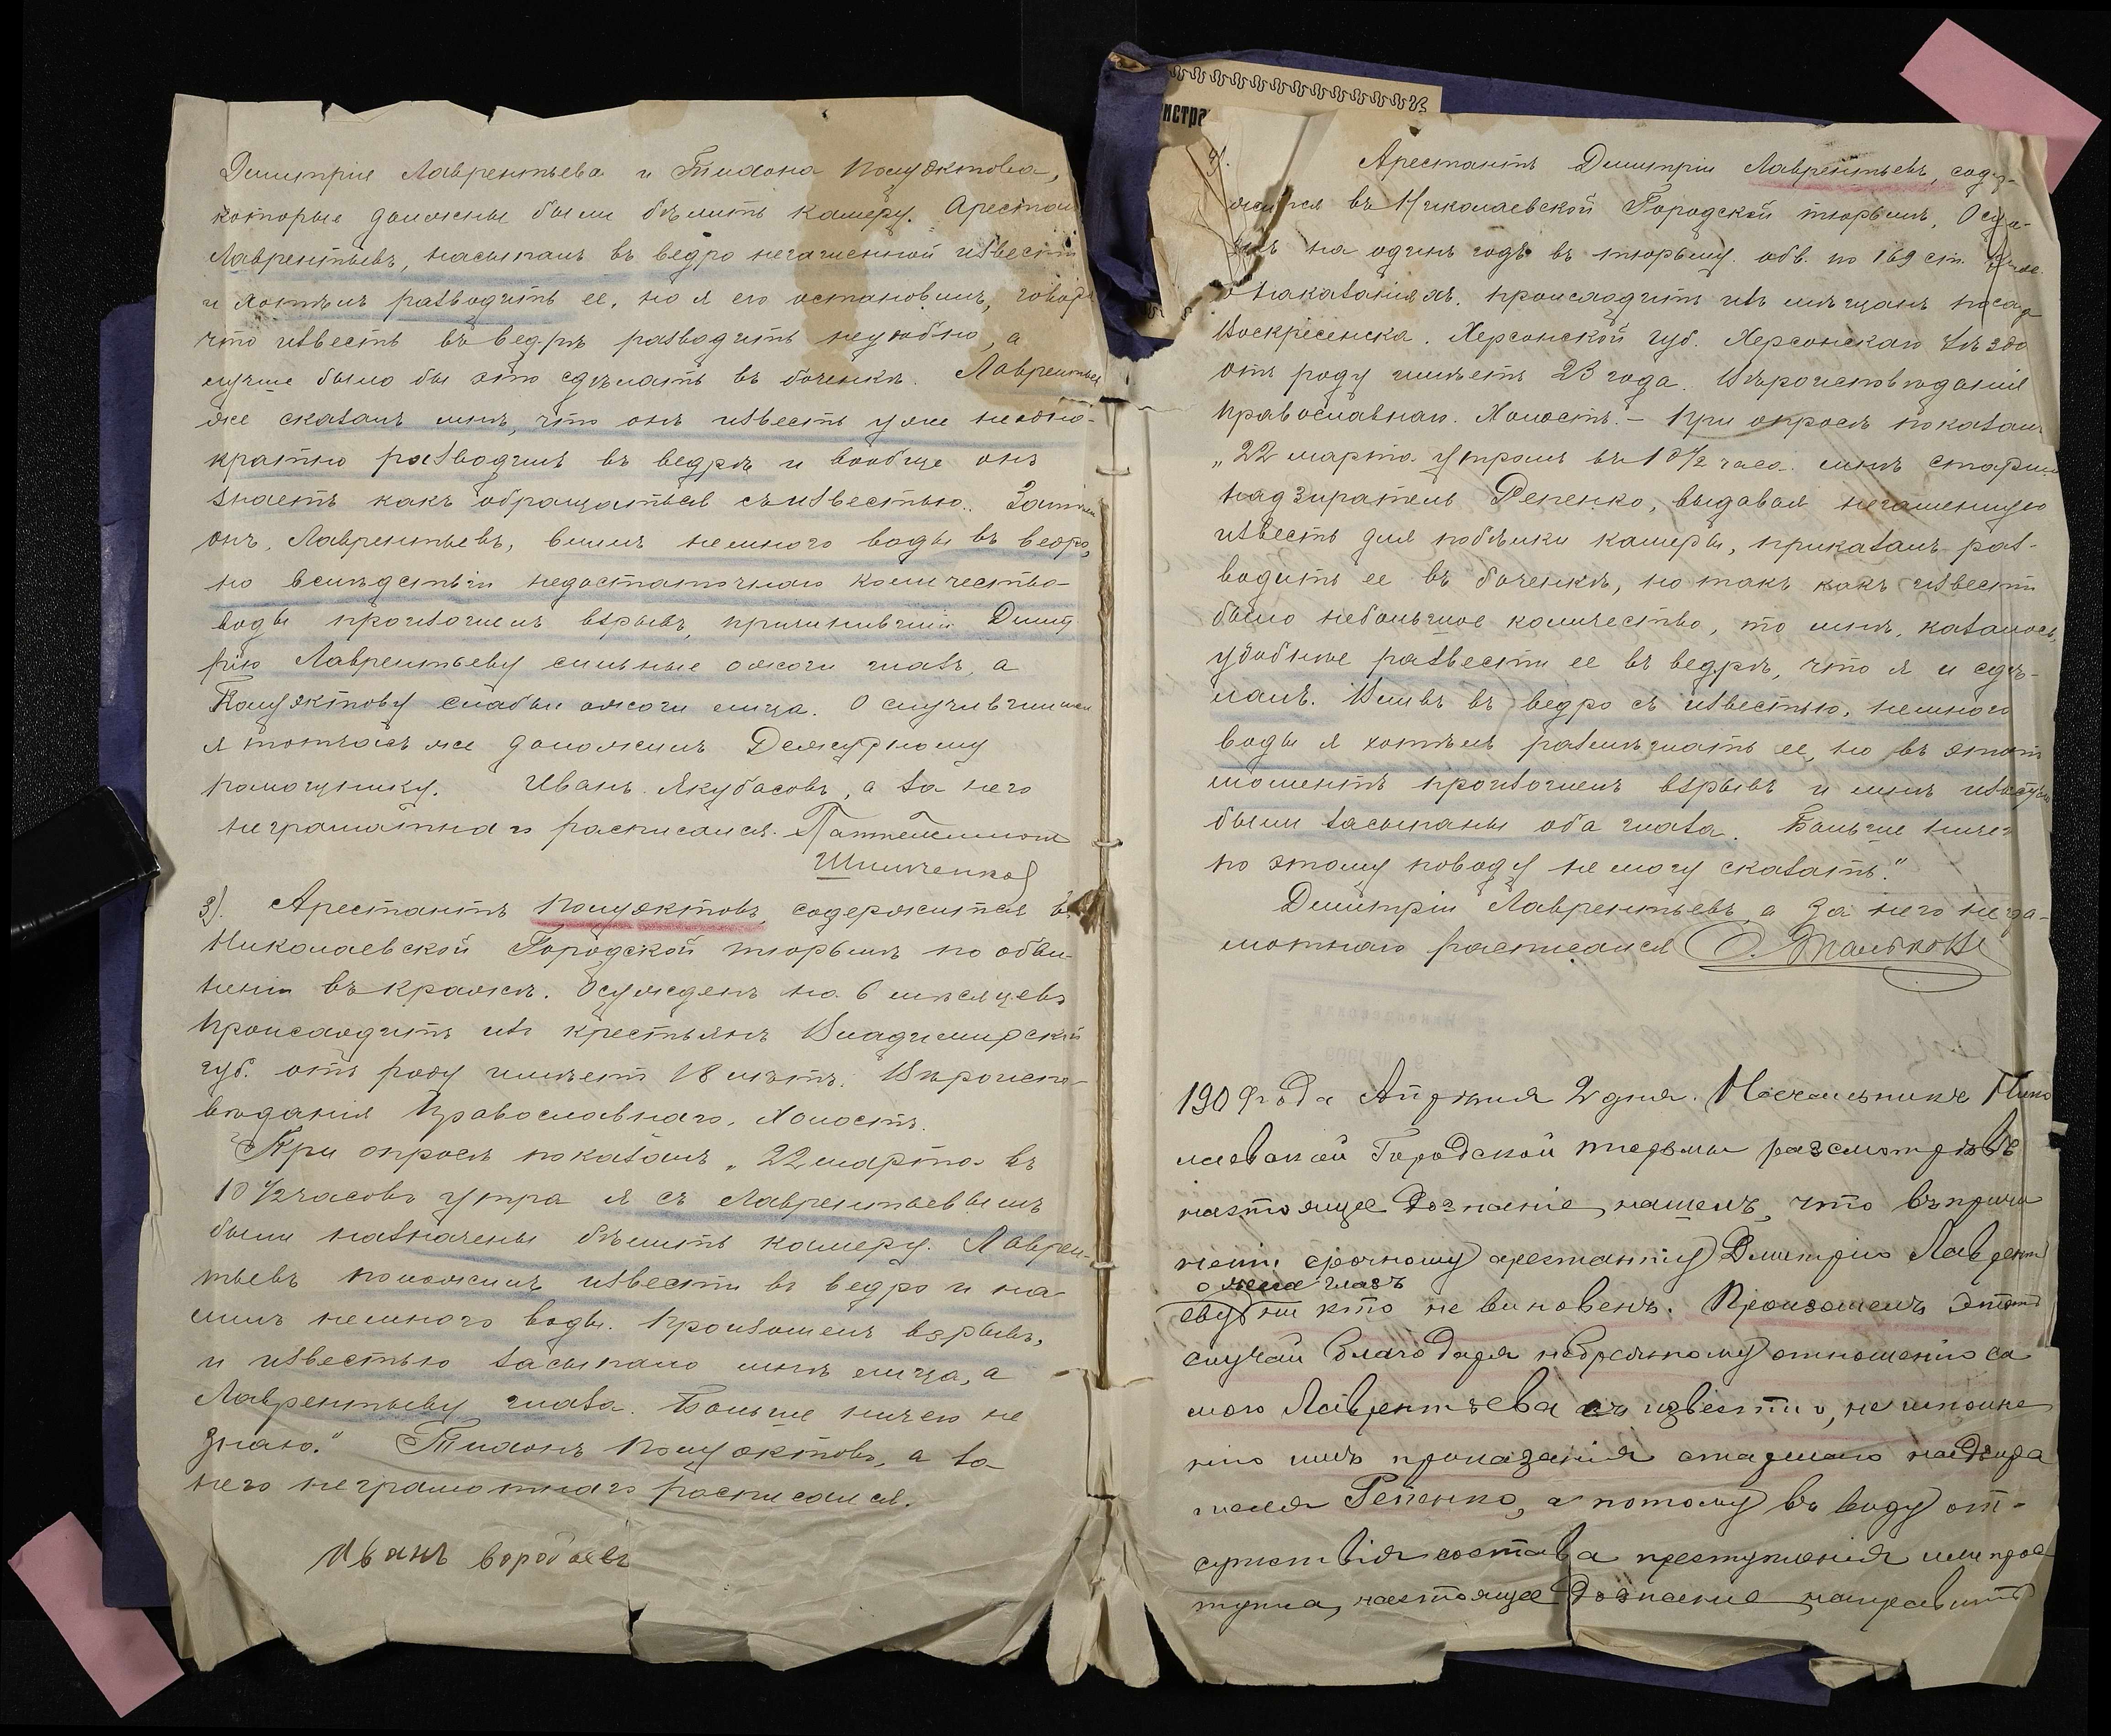 Димитрія Лаврентьева и Тихона Полуэктова,
которые должны были бѣлить камеру. Арестан
Лаврентьевъ, насыпалъ въ ведро негашенной извести
и хотѣлъ разводить ее, но я его остановилъ, говоря
что известь въ ведрѣ разводить неудобно, а
лучше было бы это сдѣлать въ боченкѣ. Лаврентьев
же сказалъ мнѣ, что онъ известь уже неодно-
кратно разводилъ въ ведрѣ и вообще онъ
знаетъ какъ обращаться съ известью. Затѣм
онъ, Лаврентьевъ, влилъ немного воды въ ведро,
но вслѣдствіи недостаточнаго количества
воды произошелъ взрывъ, причинившій Димит
рію Лаврентьеву сильные ожоги глазъ, а
Полуэктову слабые ожоги лица. О случившимся
я тотчасъ же доложилъ Дежурному
помощнику. Иванъ Якубасовъ, а за него
неграмотнаго расписался
Шимченко
3). Арестантъ Полуэктовъ, содержится въ
Николаевской Городской тюрьмѣ по обви-
неніи въ кражѣ. Осужденъ на 6 мѣсяцевъ
Происходитъ изъ крестьянъ Владимирской
губ. отъ роду имѣетъ 18 лѣтъ. Вѣроиспо-
вѣданія Православнаго. Холостъ.
При опросѣ показалъ „22 марта въ
10 1/2 часовъ утра я съ Лаврентьевымъ
были назначены бѣлить камеру. Лаврен-
тьевъ положилъ извести въ ведро и на
лилъ немного воды. Произошелъ взрывъ,
и известью засыпало мнѣ лица, а
Лаврентьеву глаза. Больше ничего не
знаю." Тихонъ Полуэктовъ, а за
него неграмотнаго расписался.
Иванъ Воробьевъ
4). Арестантъ Димитрій Лаврентьевъ, содер-
жится въ Николаевской Городской тюрьмѣ, Осуж-
на одинъ годъ въ тюрьму. обв. по 169 ст.
о наказаніяхъ. происходитъ изъ мѣщанъ посад
Воскресенска. Херсонской губ. Херсонскаго Уѣзда
отъ роду имѣетъ 23 года. Вѣроисповѣданія
Православнаго. Холостъ. – При опросѣ показалъ
„22 марта утромъ въ 10 1/2 часа. мнѣ старш
надзиратель Репенко, выдавая негашенную
известь для побѣлки камеры, приказалъ раз-
водить ее въ боченкѣ, но такъ какъ извести
было небольшое количество, то мнѣ, казалось,
удобнѣе развести ее въ ведрѣ, что я и сдѣ-
лалъ. Вливъ въ ведро съ известью, немного
воды я хотѣлъ размѣшать ее, но въ этотъ
моментъ произошелъ взрывъ и мнѣ известью
были засыпаны оба глаза. Больше ничег
по этому поводу не могу сказать."
Димитрій Лаврентьевъ, а за него негра-
мотнаго расписался
1909 года Апрѣля 2 дня. Начальникъ Нико
лаевской Городской тюрьмы разсмотрѣвъ
настоящее дознаніе, нашелъ, что въ причи
неніи срочному арестанту Дмитрію Лаврентъ
ожега глазъ
еву ни кто не виновенъ. Произошелъ этотъ
случай благодаря небрежному отношенію са
мого Лаврентьева къ извести, не исполне
нію имъ приказанія старшаго надзира
теля Репенко, а потому въ виду от-
сутствія состава преступленія или прос
тупка, настоящее дознаніе направить